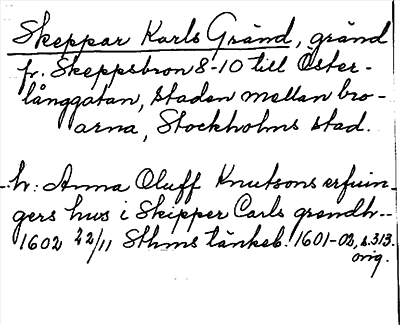 Skeppar Karls Gränd, gränd
fr. Skeppsbron 8-10 till Öster-
långgatan, staden mellan bro-
arna, Stockholms stad.
-h: Anna Oluff Knutsons erfuin-
gers hus i Skipper Carls grendh--
1602 22/11 Sthms tänkeb. 1601-02, s. 313.
orig.